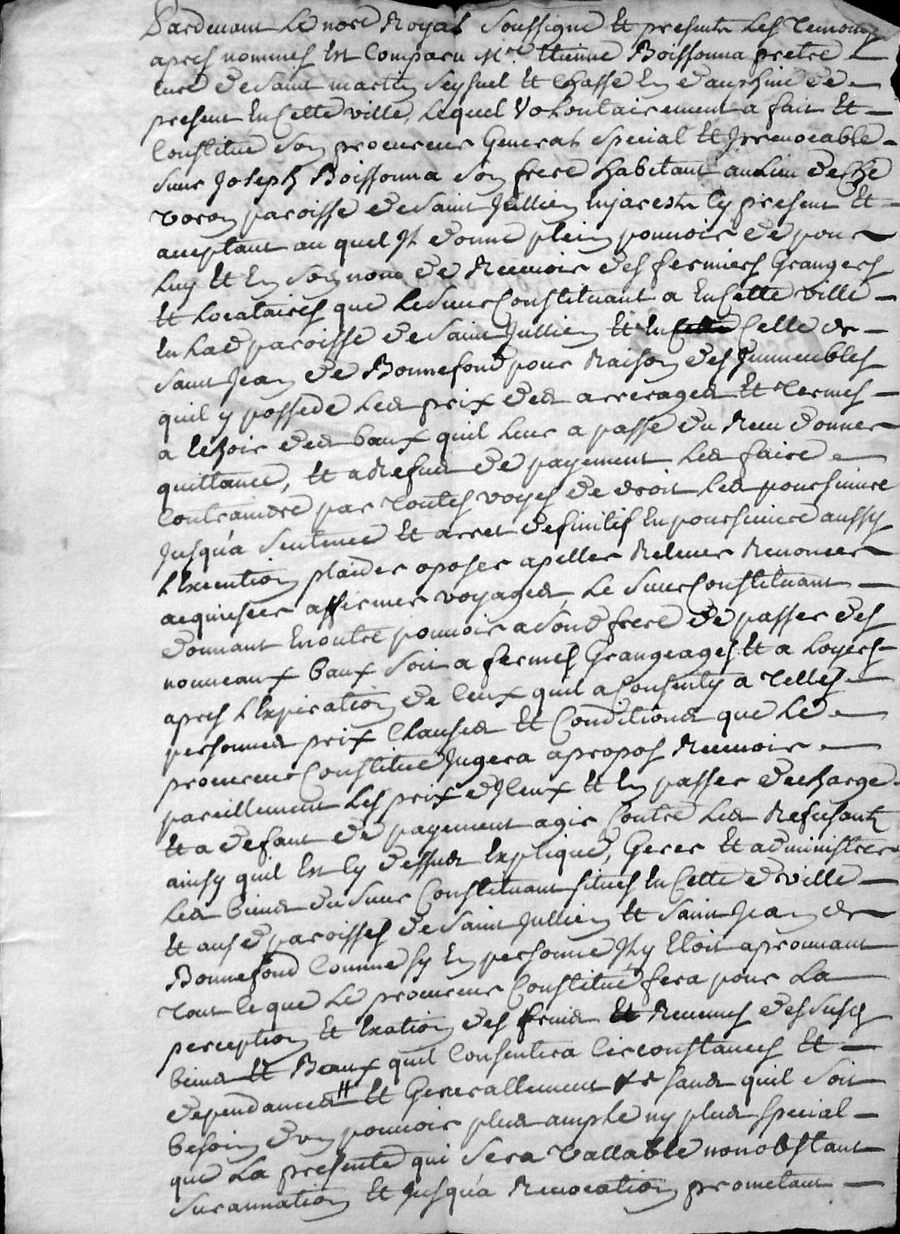 Pardevant Le no.re Royal Soussigné Et presents Les Temoins
apres nommes Est Comparu M.re Etienne Boissonna pretre
Curé de Saint martin Seyssuel Et Chasse En dauphiné de
present En Cette ville, Lequel Volontairement a fait Et
Constitué Son procureur General Special Et Irrevocable
Sieur Joseph Boissonna Son frere habitant au Lieu de
paroisse de Saint Jullien En jarest Cy present Et
acceptant au quel Il donne plein pouvoir de pour
Luy Et En Son nom de Recevoir des fermiers Grangers
Et Locataires que Le Sieur Constituant a En Cette ville
En Lad paroisse de Saint Jullien Et En Celle de
Saint Jean de Bonnefond pour Raison des Immeubles
quil y possede Les prix des arrerages Et Termes
a Echoir des baux quil Leur a passé du Receu donner
quittance, Et a Refus de payement Les faire
Contraindre par Toutes voyes de droit Les poursuivre
Jusqu'a Sentence Et arret definitif En poursuivre aussy
L'Execution plaider oposer apeller Relever Renoncer
acquiescer affirmer voyages, Le Sieur Constituant
donnant En outre pouvoir a Sond frere de passer des
nouveaux baux Soit a fermes Grangeages Et a Loyers
apres L'Expiration de Ceux quil a Consenty a Telles
personnes prix Clauses Et Conditions que Le
procureur Constitué Jugera a propos Recevoir
pareillement Les prix d'Iceux Et En passer decharge
Et a defaut de payement agir Contre Les Refusants
ainsy quil Est Cy dessus Expliqué, Gerer Et administrer
Les biens du Sieur Constituant Situés En Cette d ville
Et aus d paroisses de Saint Jullien Et Saint Jean de
Bonnefond Comme Sy En personne Il y Etoit aprouvant
Tout Ce que Le procureur Constitué fera pour La
perception Et Exation des fruits Et Revenus des Susd
biens Et Beaux quil Consentira Circonstances Et
dependances Et Generallement Sans quil Soit
besoin d'un pouvoir plus ample ny plus Special
que La presente qui Sera Vallable nonobstant
Surannation Et Jusqu'a Revocation prometant